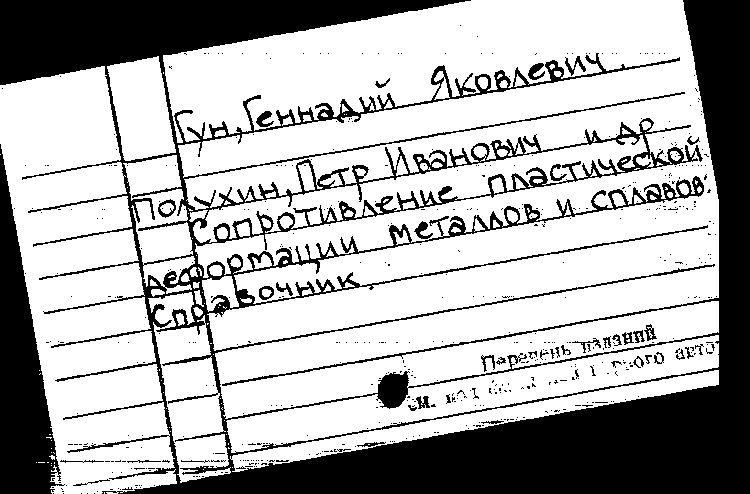 Гун, Геннадий Яковлевич.
Полухин, Петр Иванович и др
Сопротивление пластической
деформации металлов и сплавов.
Справочник.
Перечень изданий
см. под первого авто